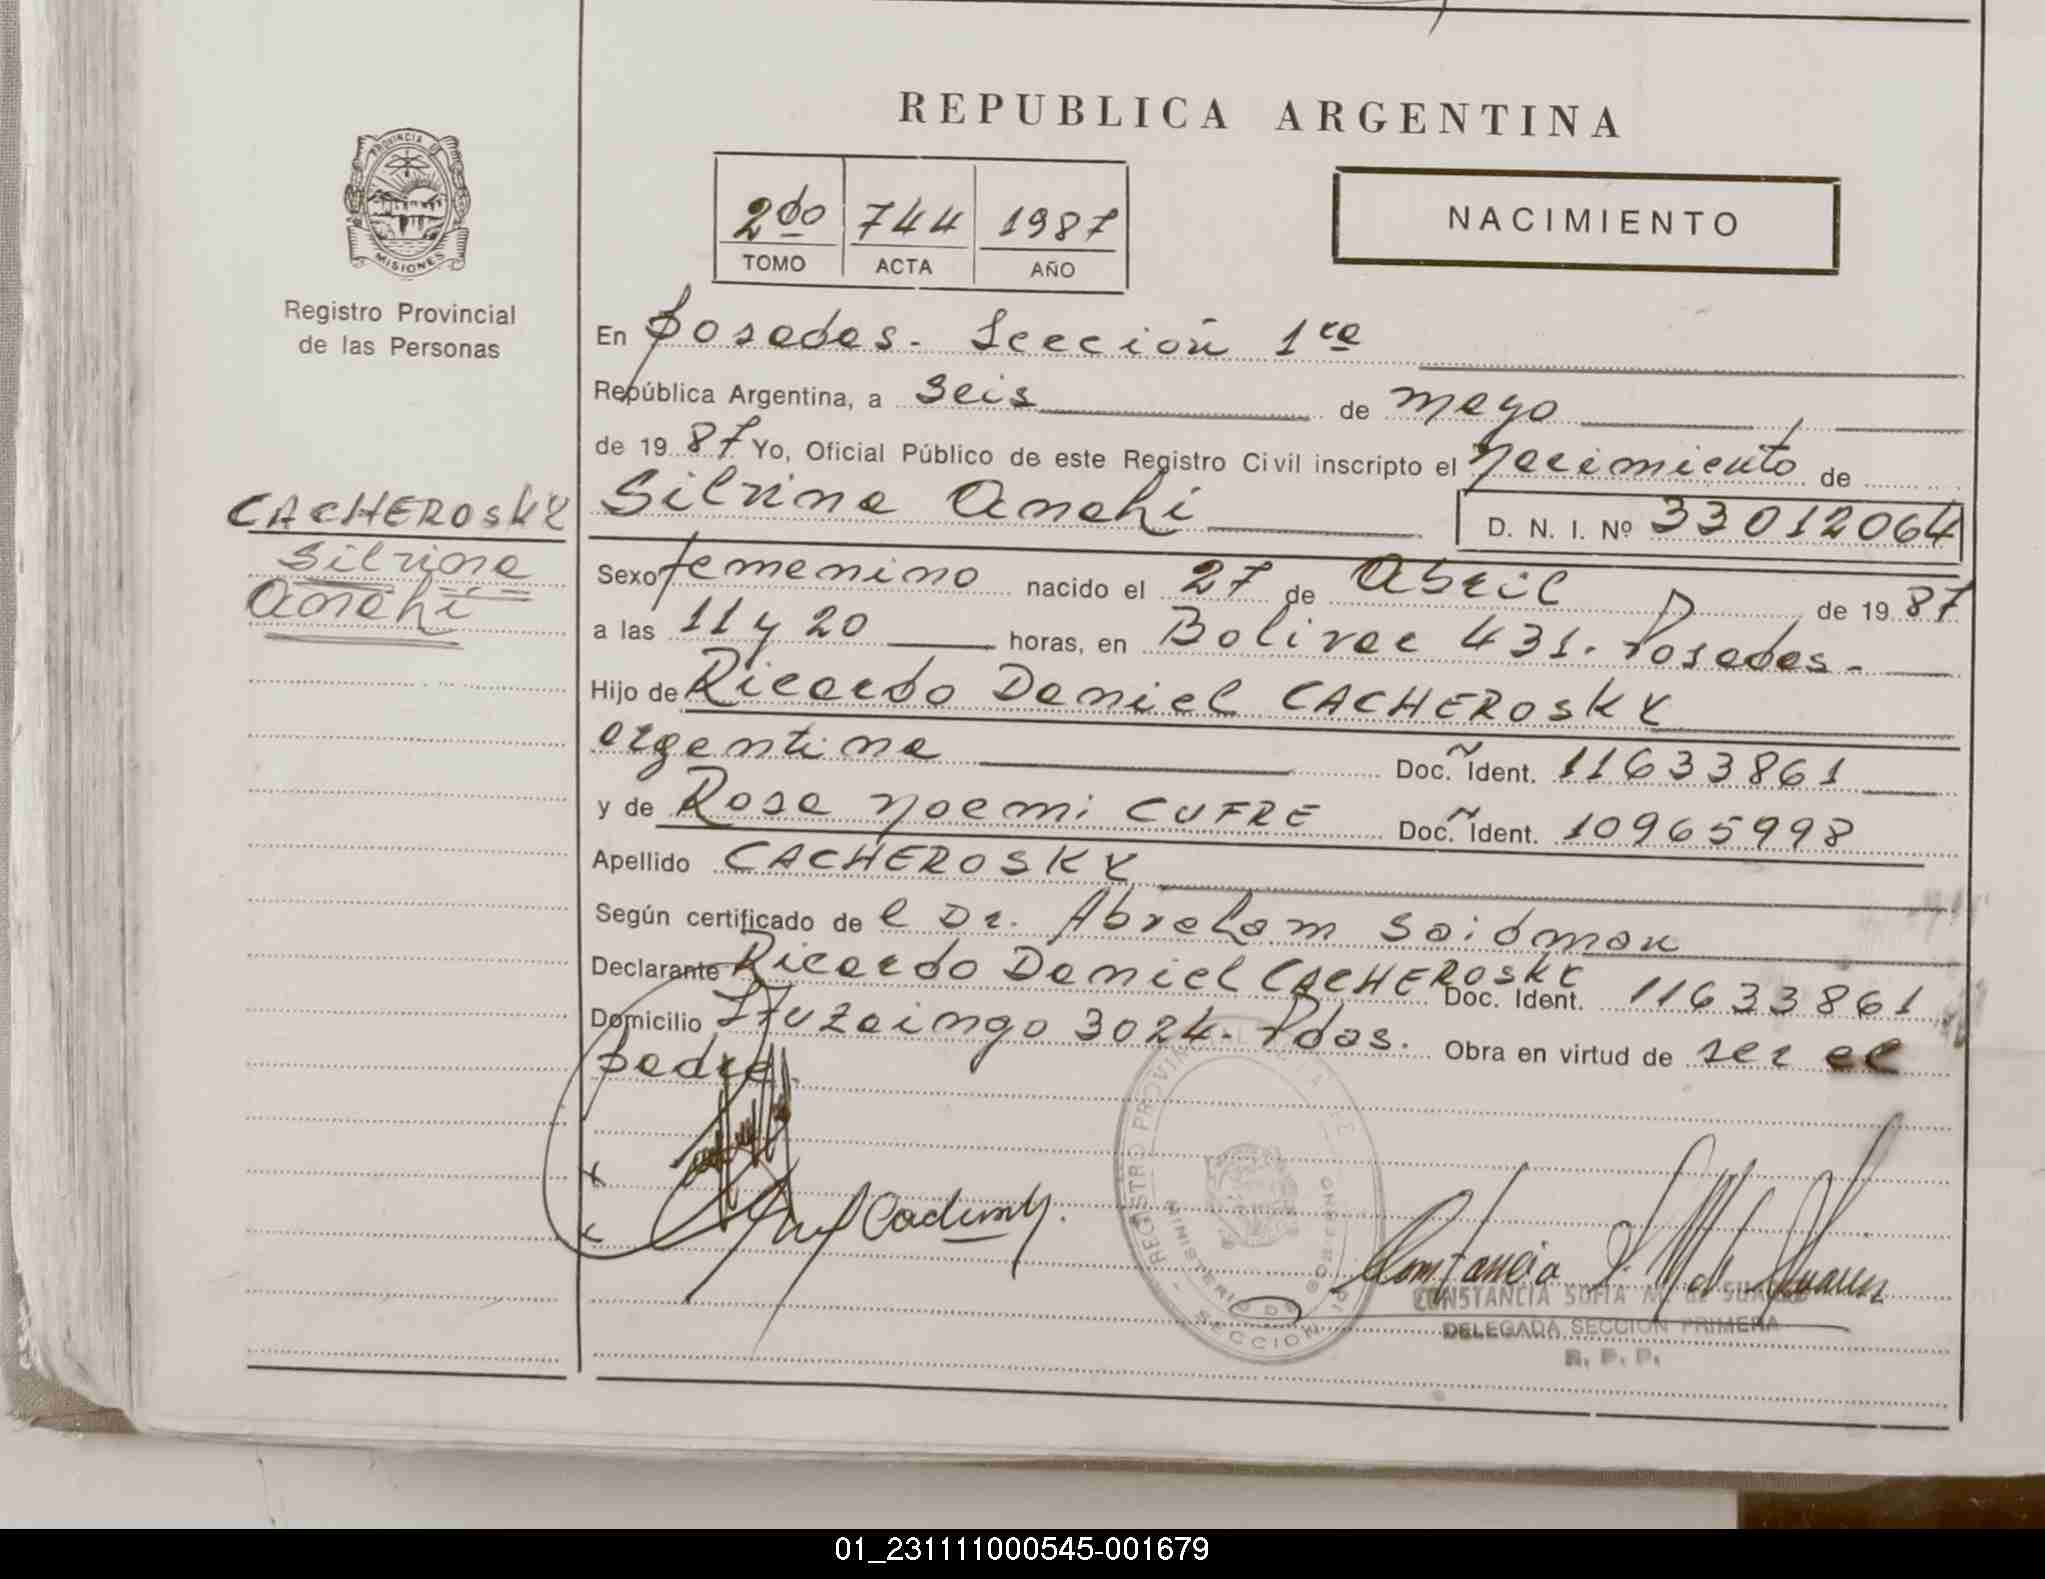 REPUBLICA ARGENTINA
PROVINCIA DE
MISIONES
Registro Provincial
de las Personas
2do 744 1987
TOMO ACTA AÑO
NACIMIENTO
En Posadas. Sección 1ra
República Argentina, a seis de mayo
de 1987 Yo, Oficial Público de este Registro Civil inscripto el nacimiento de
Silvina Anahi D. N. I. Nº 33012064
CACHEROSKY
Silvina
Anahi
Sexo femenino nacido el 27 de Abril de 1987
a las 11 y 20 horas, en Bolivar 431. Posadas.
Hijo de Ricardo Daniel CACHEROSKY
argentina Doc. Ident. 11633861
y de Rosa Noemi CUFRE Doc. Ident. 10965998
Apellido CACHEROSKY
Según certificado de el Dr. Abraham Saidman
Declarante Ricardo Daniel CACHEROSKY Doc. Ident. 11633861
Domicilio Ituzaingo 3024. Pdas. Obra en virtud de ser el
padre.
REGISTRO PROVINCIAL DE LAS
MINISTERIO DE GOBIERNO
SECCION 1ª
Constancia S. M. de Suarez
CONSTANCIA SOFIA M. de SUAREZ
DELEGADA SECCION PRIMERA
R. P. P.
01_231111000545-001679